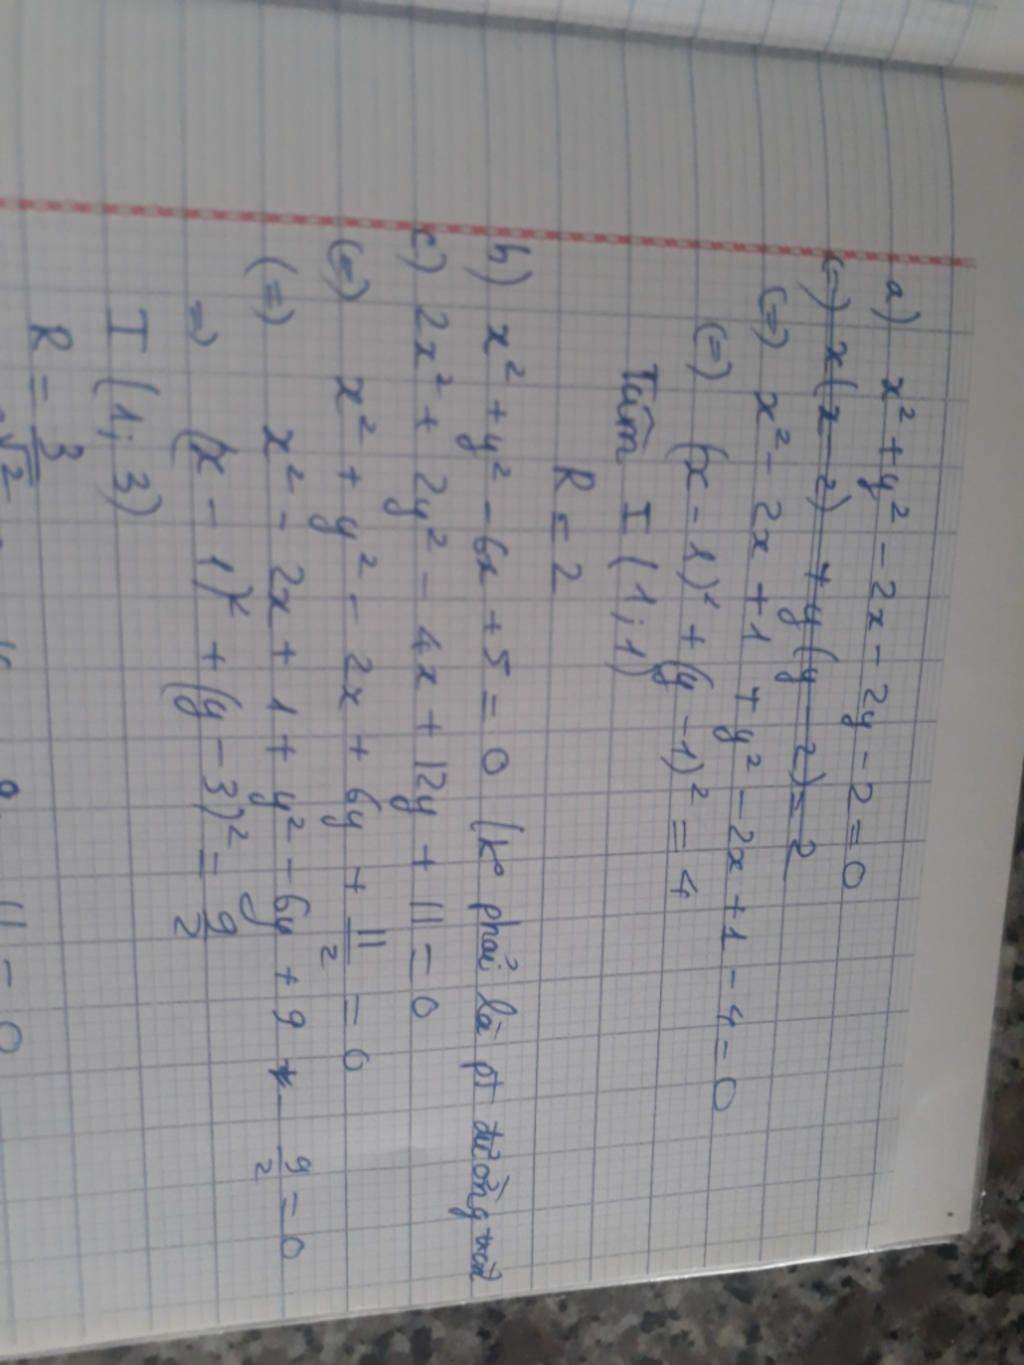 a) x² + y² - 2x - 2y - 2 = 0
(=) x(x - 2) + y(y - 2) = 2
(=) x² - 2x + 1 + y² - 2x + 1 - 4 = 0
(=) (x - 1)² + (y - 1)² = 4
Tâm I (1; 1)
R = 2
b) x² + y² - 6x + 5 = 0 (k° phải là pt đường tròn
c) 2x² + 2y² - 4x + 12y + 11 = 0
(=) x² + y² - 2x + 6y + 11/2 = 0
(=) x² - 2x + 1 + y² - 6y + 9 - 9/2 = 0
=) (x - 1)² + (y - 3)² = 9/2
I (1; 3)
R = 3/√2
11 = 0